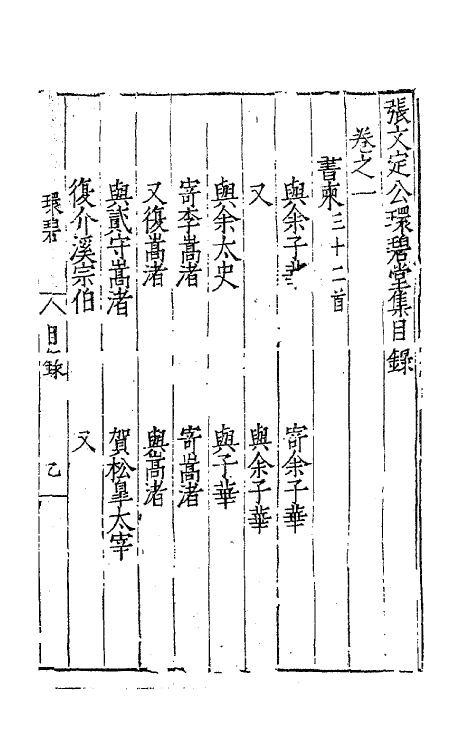 張文定公環碧堂集目錄
卷之一
書柬三十二首
與余子華 寄余子華
又 與余子華
與余太史 與子華
寄李嵩渚 寄嵩渚
又復嵩渚 與嵩渚
與貳守嵩渚 賀松皐太宰
復介溪宗伯 又
環碧 目錄 乙